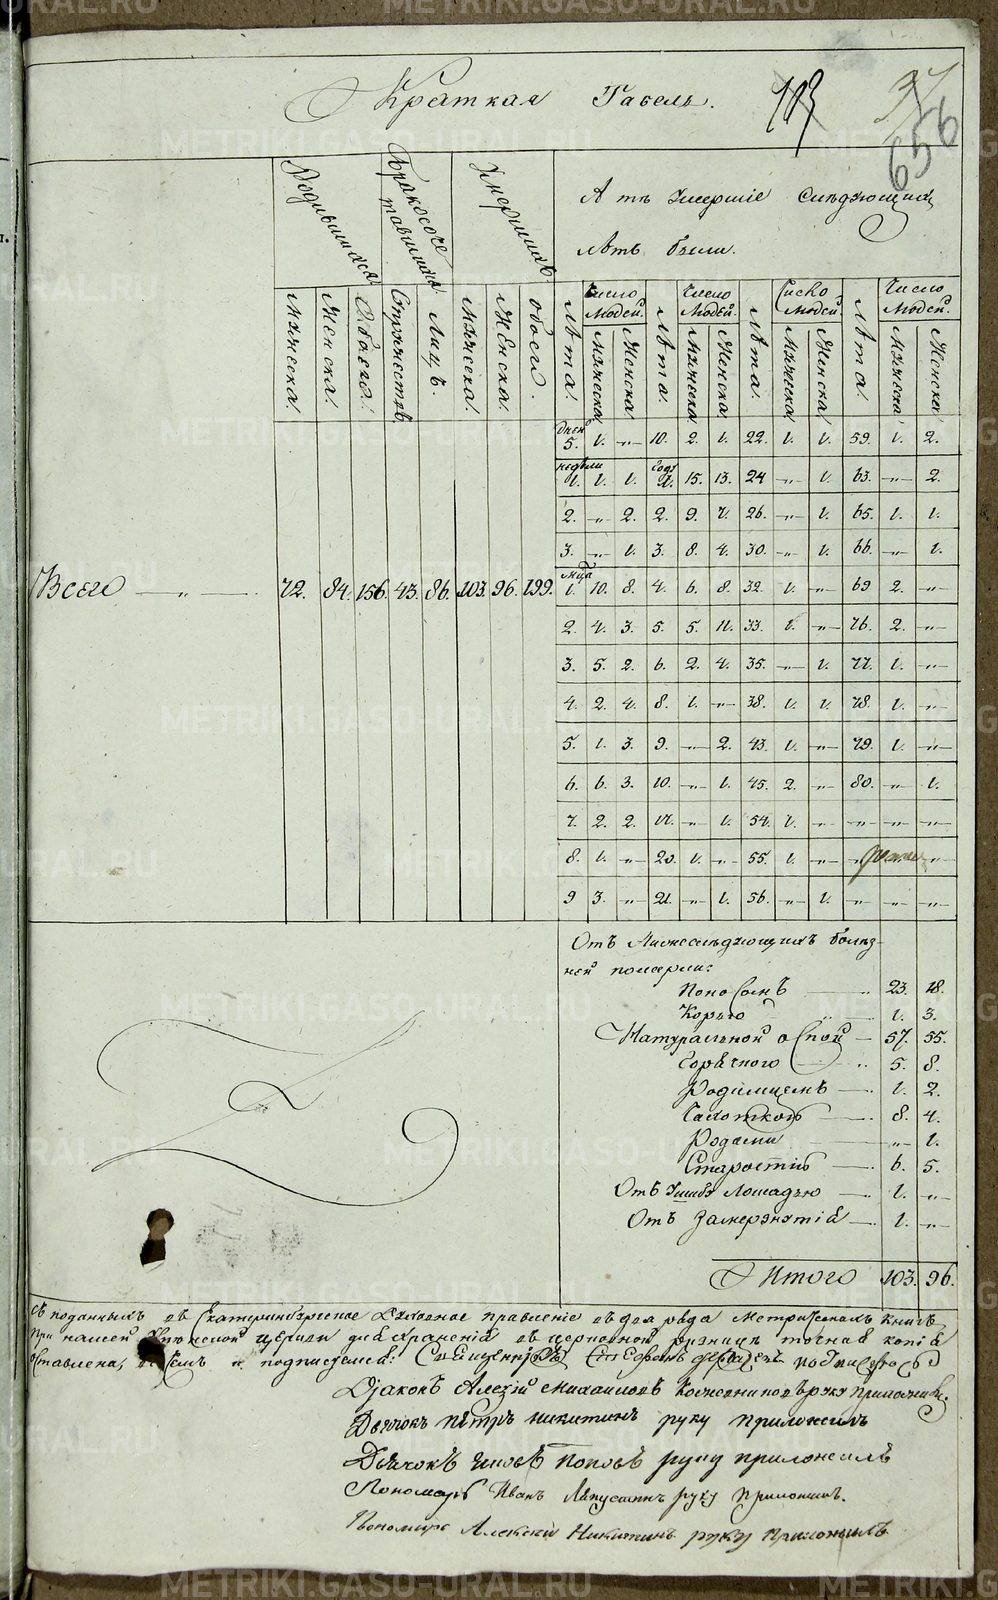 Краткая Табель.
103
37
656
Родившихся
Бракосоче
тавшихся
Умершихъ
А тѣ Умершіе Слѣдующихъ
лѣтъ были.
Мужеска. Женска. Обоего. Супружествъ. Лицъ. Мужеска. Женска. обоего.
Лѣта. Число людей. Мужеска Женска Лѣта. Число людей. Мужеска Женска Лѣта. Число людей. Мужеска Женска Лѣта. Число людей. Мужеска Женска
дней 5. 1. „ 10. 2. 1. 22. 1. 1. 59. 1. 2.
недѣли 1. 1. 1. году 1. 15. 13. 24 „ 1. 63. „ 2.
2. „ 2. 2. 9. 7. 26. „ 1. 65. 1. 1.
3. „ 1. 3. 8. 4. 30. „ 1. 66. „ 1.
Всего „ 72. 84. 156. 43. 86. 103. 96. 199.
мца 1. 10. 8. 4. 6. 8. 32. 1. „ 69 2. „
2. 4. 3. 5. 5. 11. 33. 1. „ 76. 2. „
3. 5. 2. 6. 2. 4. 35. „ 1. 77. 1. „
4. 2. 4. 8. 1. „ 38. 1. 1. 78. 1. „
5. 1. 3. 9. „ 2. 43. 1. „ 79. 1. „
6. 6. 3. 10. „ 1. 45. 2. „ 80. „ 1.
7. 2. 2. 17. „ 1. 54. 1. „ „ „ „
8. 1. „ 20. 1. „ 55. 1. „ „ „
9 3. „ 21. „ 1. 56. „ 1. „ „ „
Отъ Нижеслѣдующихъ болѣз-
ней померли:
Поносомъ 23. 18.
Корью 1. 3.
Натуральной оспой 57. 55.
Горячкою 5. 8.
Родимцемъ 1. 2.
Чахоткою 8. 4.
Родами „ 1.
Старостію 6. 5.
Отъ Ушиба Лошадью 1. „
Отъ Замерзнятія 1. „
Итого 103. 96.
Съ поданныхъ въ Екатеринбургское Духовное правленіе въ два ряда Метрическихъ Книгъ
При нашей церкви для храненія въ церковной ризницѣ точная копія
Оставлена, въ чемъ и подписуемся: Священникъ Стефанъ подписуюсь
Діаконъ Алексій Михаиловъ руку приложилъ.
Дьячокъ Петръ Никитинъ руку приложилъ
Дьячокъ Іаковъ Поповъ руку приложилъ
Пономарь Иванъ Лепусинъ руку приложилъ.
Пономарь Алексій Никитинъ руку приложилъ
METRIKI.GASO-URAL.RU